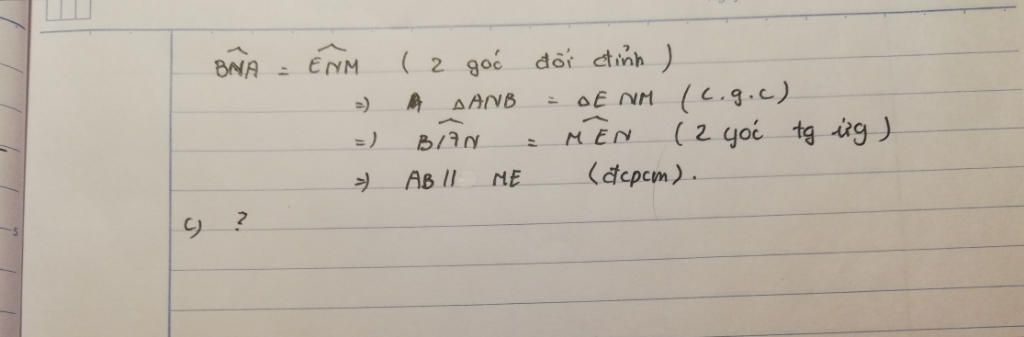 BNA = ENM ( 2 goć đối đỉnh )
=) ΔANB = ΔENM ( c.g.c )
=) BAN = MEN ( 2 goć tg ứg )
=) AB // ME (đcpcm).
c) ?